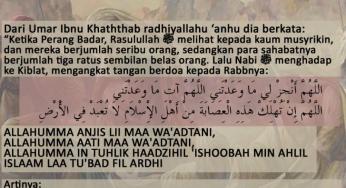 Dari Umar Ibnu Khaththab radhiyallahu 'anhu dia berkata:
"Ketika Perang Badar, Rasulullah ﷺ melihat kepada kaum musyrikin,
dan mereka berjumlah seribu orang, sedangkan para sahabatnya
berjumlah tiga ratus sembilan belas orang. Lalu Nabi ﷺ menghadap
ke Kiblat, mengangkat tangan berdoa kepada Rabbnya:
اللَّهُمَّ أَنْجِزْ لِي مَا وَعَدْتَنِي اللَّهُمَّ آتِ مَا وَعَدْتَنِي
اللَّهُمَّ إِنْ تُهْلِكْ هَذِهِ الْعِصَابَةَ مِنْ أَهْلِ الْإِسْلَامِ لَا تُعْبَدْ فِي الْأَرْضِ
ALLAHUMMA ANJIS LII MAA WA'ADTANI,
ALLAHUMMA AATI MAA WA'ADTANI,
ALLAHUMMA IN TUHLIK HAADZIHIL 'ISHOOBAH MIN AHLIL
ISLAAM LAA TU'BAD FIL ARDHI
Artinya: